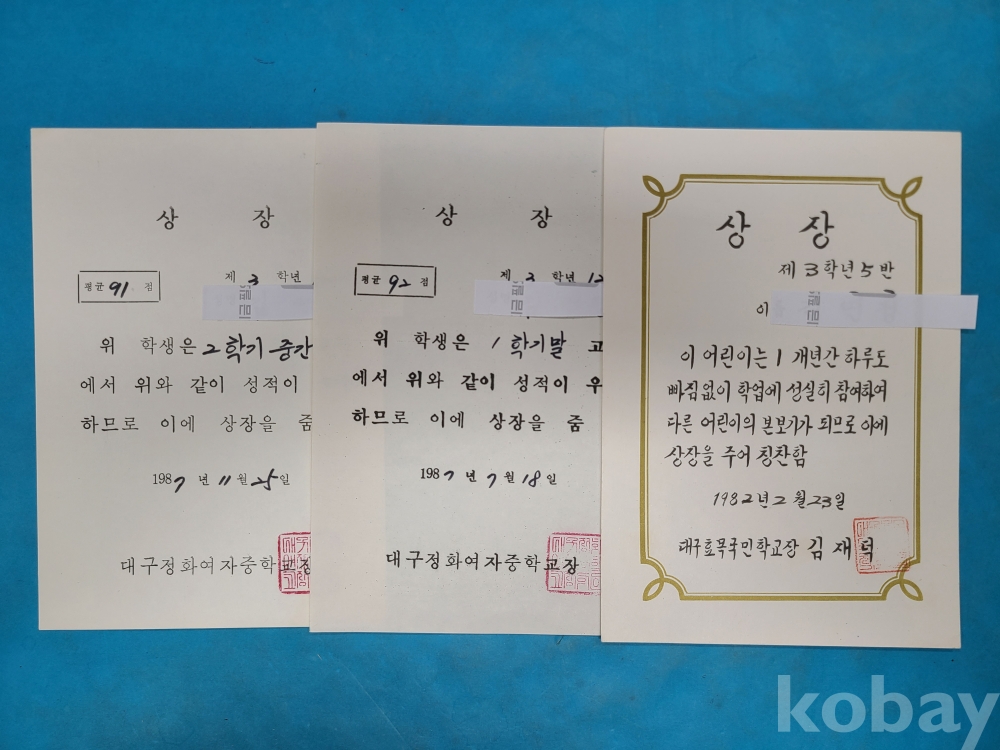 상 장
평균 91 점
제 3 학년
위 학생은 2학기 중간
에서 위와 같이 성적이
하므로 이에 상장을 줌
1987 년 11 월 25 일
대구정화여자중학교장
상 장
평균 92 점
제 3 학년 12
위 학생은 1 학기말 고
에서 위와 같이 성적이 우
하므로 이에 상장을 줌
1987 년 7 월 18 일
대구정화여자중학교장
상 장
제 3 학년 5 반
이
이 어린이는 1 개년간 하루도
빠짐없이 학업에 성실히 참여하여
다른 어린이의 본보기가 되므로 이에
상장을 주어 칭찬함
1982 년 2 월 23 일
대구효목국민학교장 김재덕
kobay